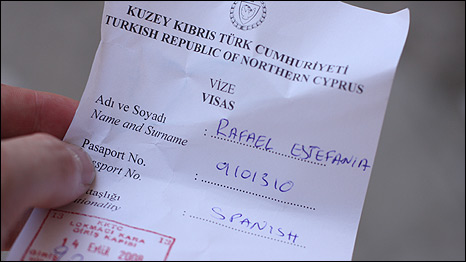 KUZEY KIBRIS TÜRK CUMHURİYETİ
TURKISH REPUBLIC OF NORTHERN CYPRUS
VİZE
VISAS
Adı ve Soyadı
Name and Surname : RAFAEL ESTEFANIA
Pasaport No.
Passport No. : 9101310
taşlığı
tionality : SPANISH
KKTC
LOKMACI KARA
GİRİŞ KAPISI
13 13
14 Eylül 2008
GİRİŞ